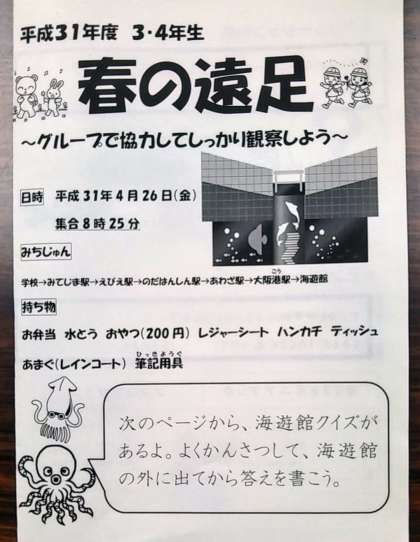 平成31年度 3・4年生
春の遠足
～グループで協力してしっかり観察しよう～
日時 平成31年4月26日(金)
集合8時25分
みちじゅん
こう
学校→みてじま駅→えびえ駅→のだはんしん駅→あわざ駅→大阪港駅→海遊館
持ち物
お弁当 水とう おやつ(200円) レジャーシート ハンカチ ティッシュ
ひっきようぐ
あまぐ(レインコート) 筆記用具
次のページから、海遊館クイズが
あるよ。よくかんさつして、海遊館
の外に出てから答えを書こう。